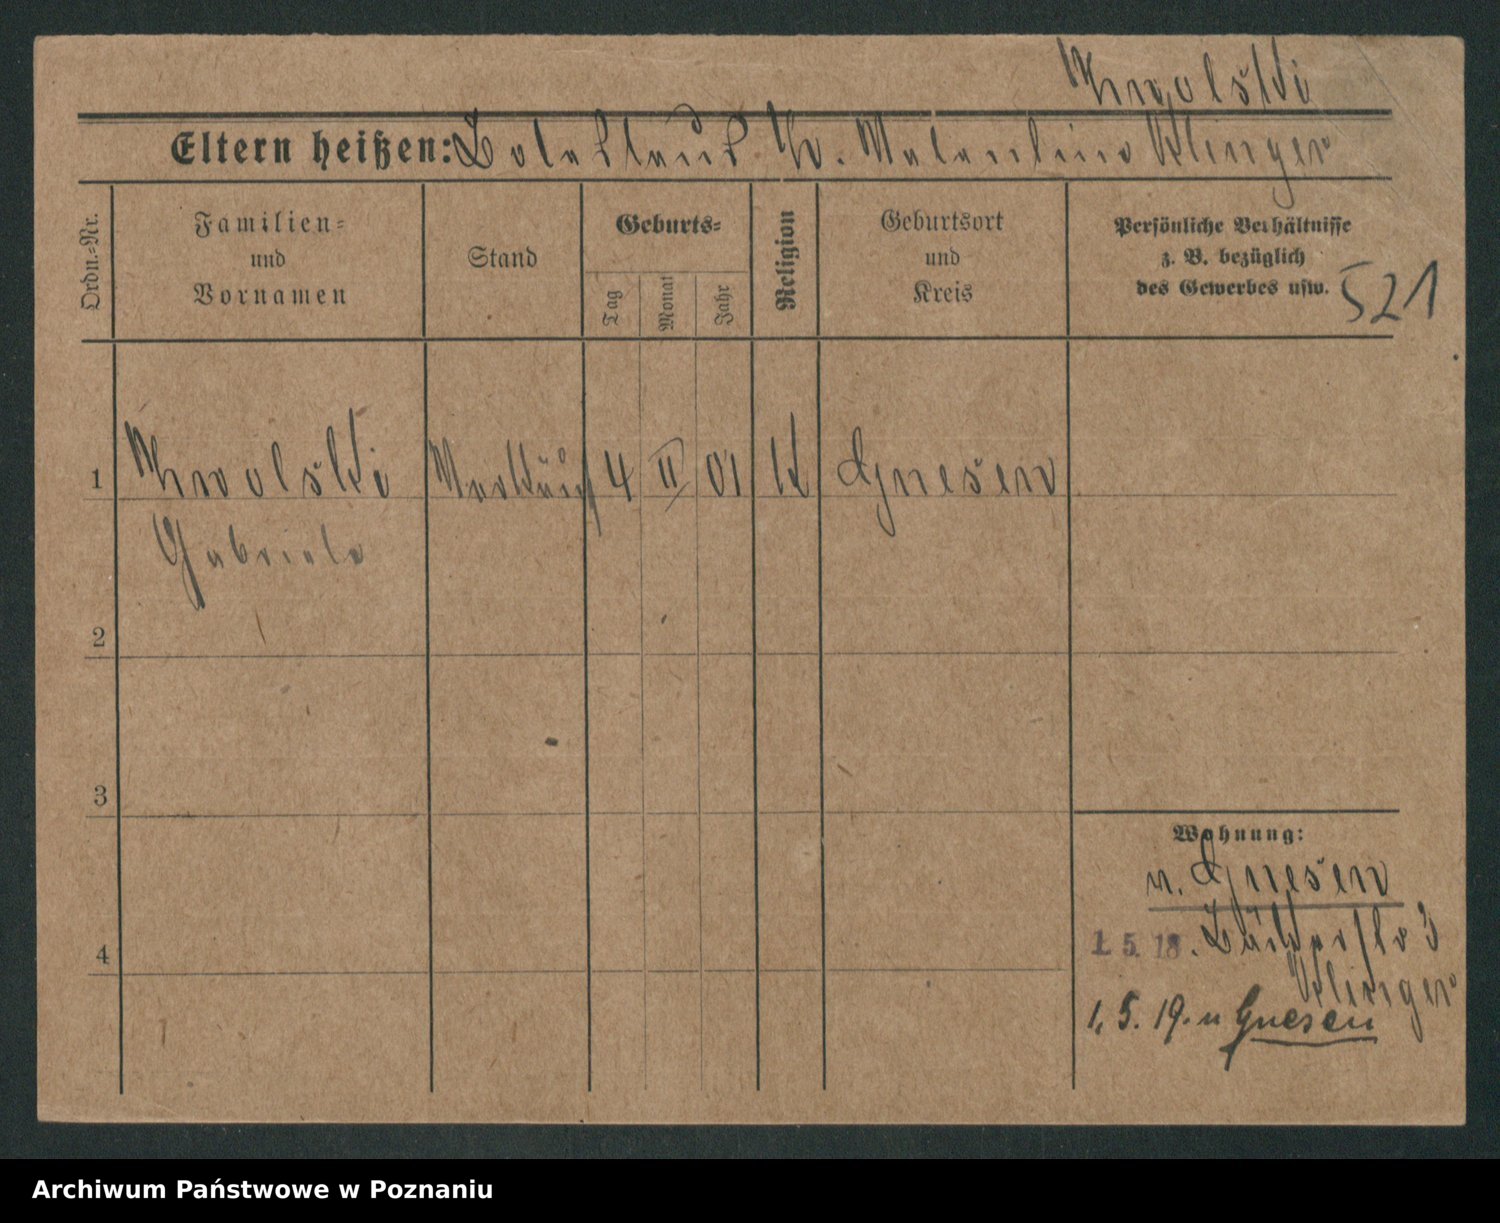 Kwolski
Eltern heißen: Boleslaus K. Valentine Klinger
Ordn.-Nr.
Familien-
und
Vornamen
Stand
Geburts-
Tag
Monat
Jahr
Religion
Geburtsort
und
Kreis
Persönliche Verhältnisse
z. B. bezüglich
des Gewerbes usw.
521
1 Kwolski 4 II 01 K Gnesen
Gabriele
2
3
4
Wohnung:
n. Gnesen
1. 5. 18. 3
Klinger
1. 5. 19. n Gnesen
Archiwum Państwowe w Poznaniu